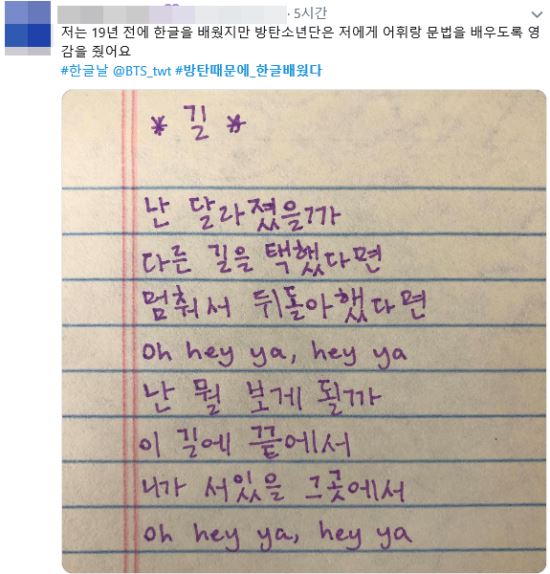 · 5시간
저는 19년 전에 한글을 배웠지만 방탄소년단은 저에게 어휘랑 문법을 배우도록 영
감을 줬어요
#한글날 @BTS_twt #방탄때문에_한글배웠다
* 길 *
난 달라졌을까
다른 길을 택했다면
멈춰서 뒤돌아했다면
Oh hey ya, hey ya
난 뭘 보게 될까
이 길에 끝에서
니가 서있을 그곳에서
Oh hey ya, hey ya